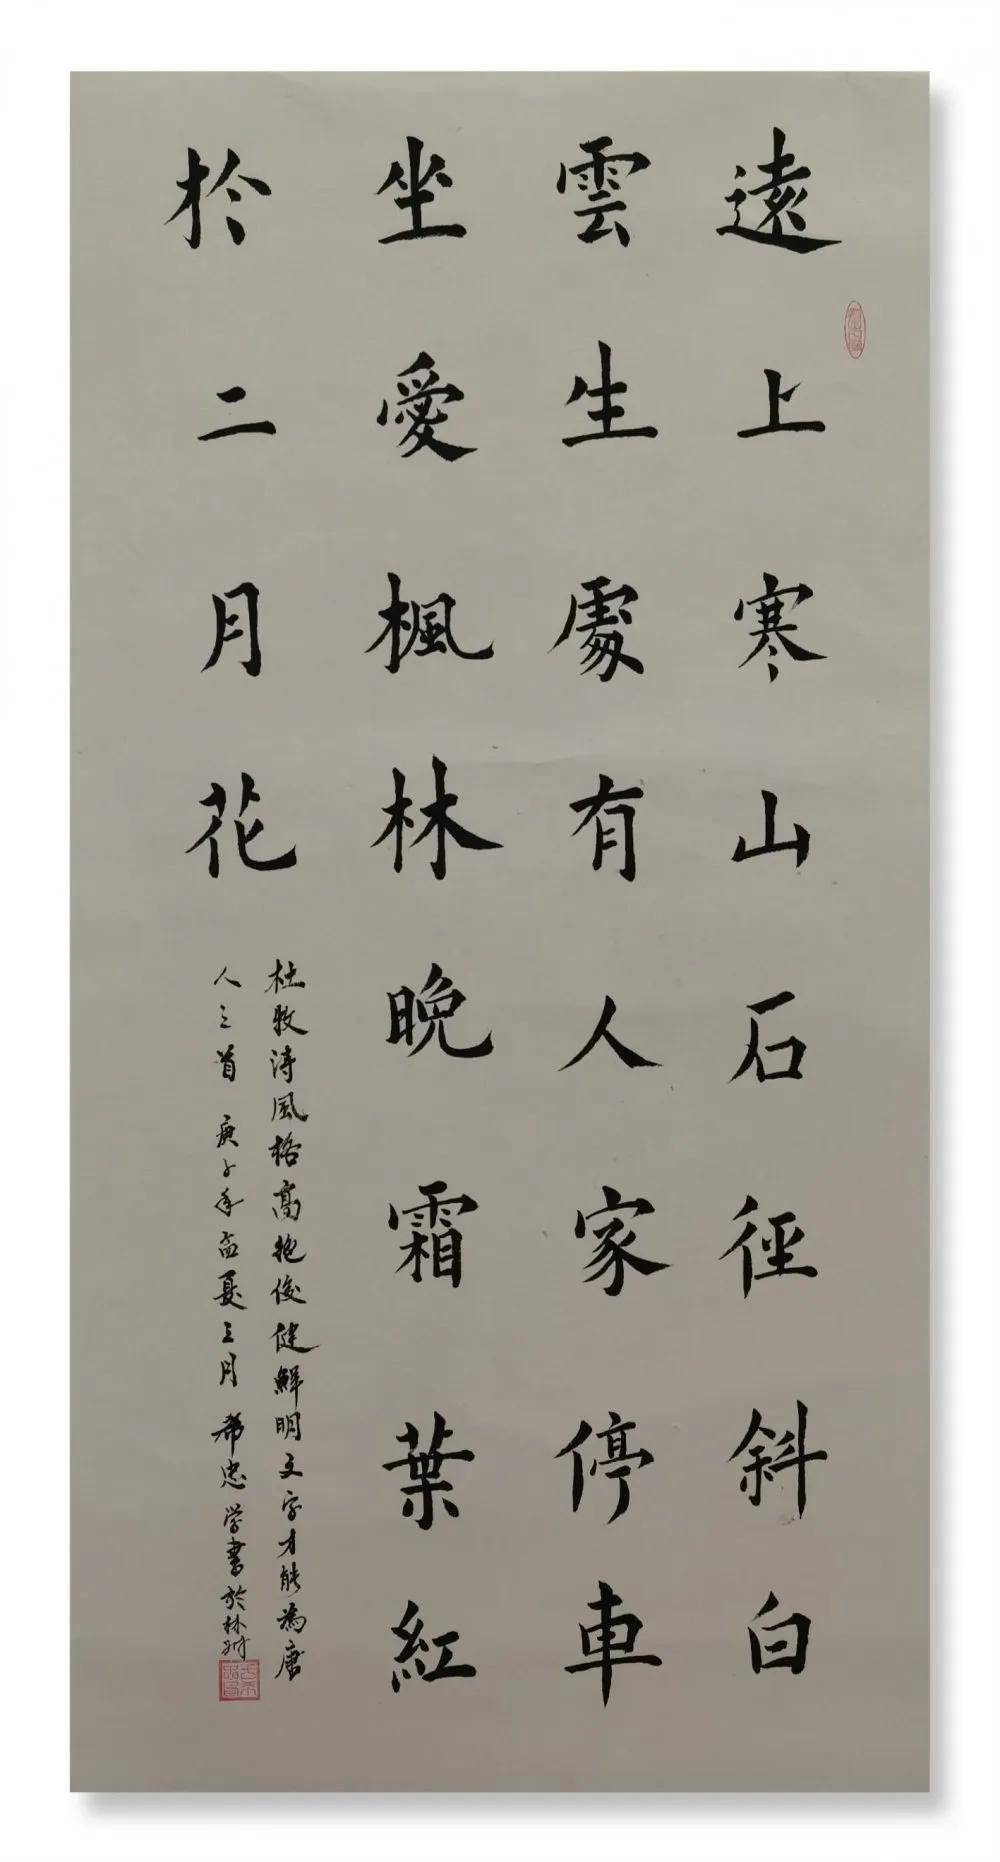 遠上寒山石徑斜白
雲生處有人家停車
坐愛楓林晚霜葉紅
於二月花
杜牧詩風格高艳俊健鮮明文字才能為唐
人之首 庚子年孟夏三月 希忠 学書於林州